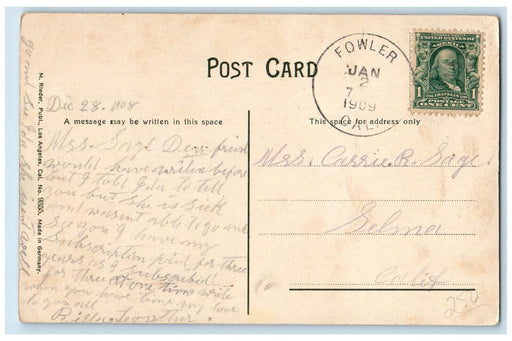 POST CARD
FOWLER
JAN
2
7
1909
CAL.
UNITED STATES OF
AMERICA
1
POSTAGE
ONE CENT
Dec 28. 1908
A message may be written in this space
This space for address only
Mrs. Sage Dear friend
would have written before
but I told Ida to tell
you but she is sick
and wasnt able to go and
see you I have my
Subscription paid for three
years as I subscribed
for three at one time write
when you have time my love
to you all
Mrs. Carrie R. Sage
Selma
Calif
250
M. Rieder, Publ., Los Angeles, Cal. No. Made in Germany.